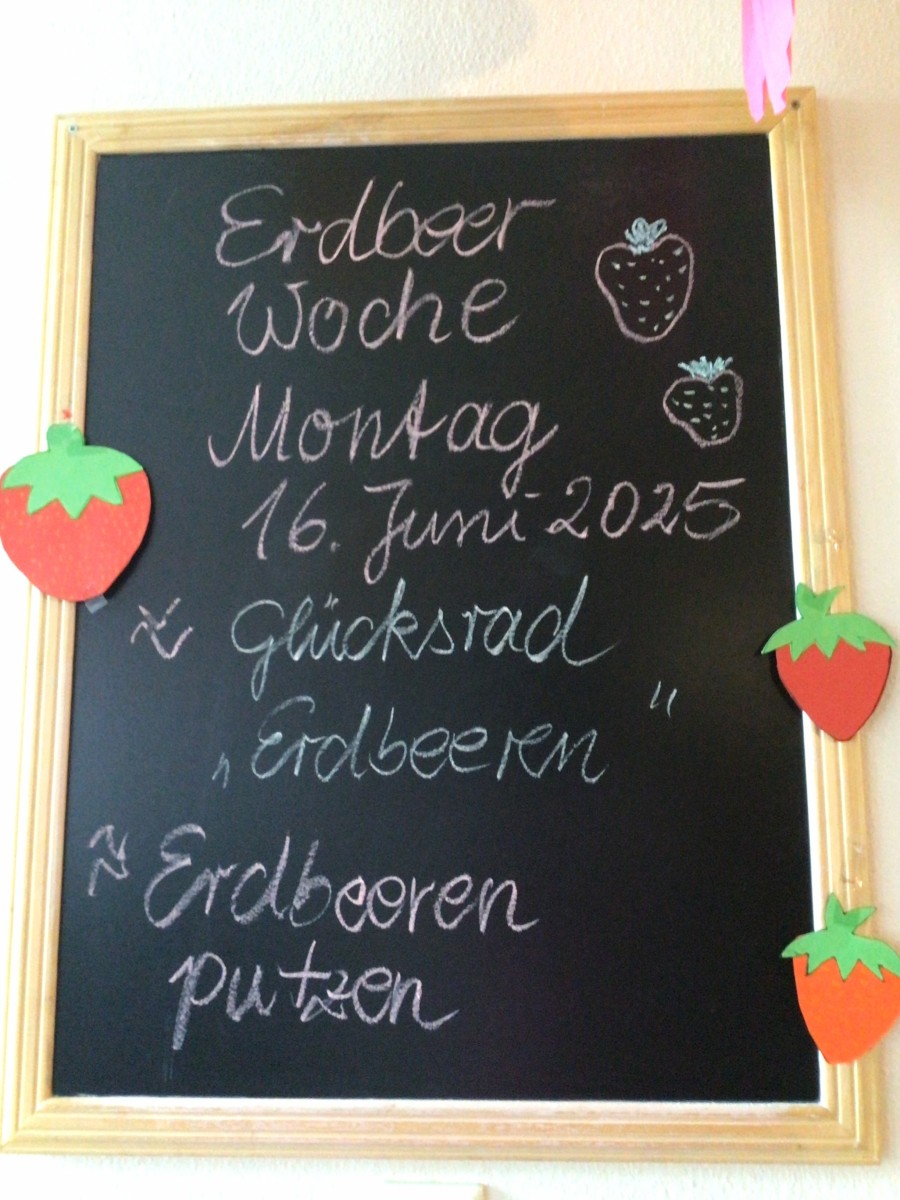 Erdbeer
Woche
Montag
16. Juni 2025
Glücksrad
„Erdbeeren“
Erdbeeren
putzen